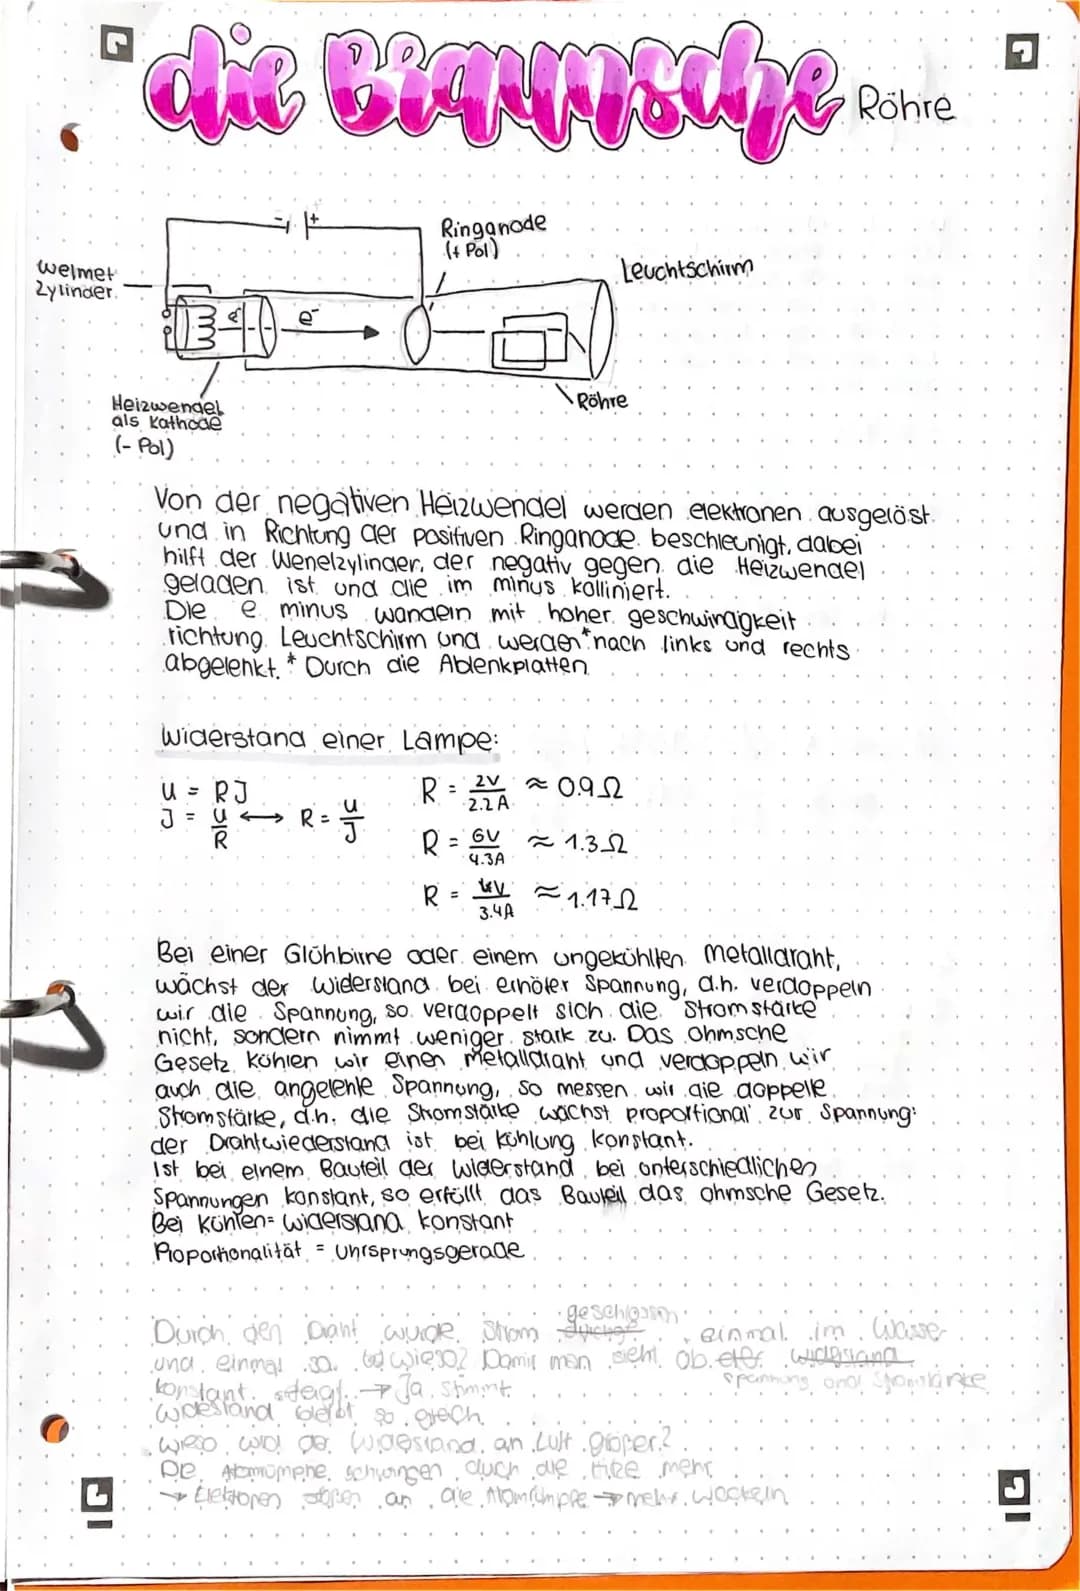 die Braunsche Röhre
-| |+
Ringanode
(+ Pol)
Leuchtschirm
Welmet
Zylinder
e⁻
e⁻
Röhre
Heizwendel
als Kathode
(- Pol)
Von der negativen Heizwendel werden elektronen ausgelöst
und in Richtung der positiven Ringanode beschleunigt, dabei
hilft der Wenelzylinder, der negativ gegen die Heizwendel
geladen ist und die im minus kolliniert.
Die e minus wandeln mit hoher geschwindigkeit
richtung Leuchtschirm und werden * nach links und rechts
abgelenkt. * Durch die Ablenkplatten
Widerstand einer Lampe:
U = RJ
J = U/R ⟷ R = U/J
R = 2V/2.2A ≈ 0.9Ω
R = 6V/4.3A ≈ 1.3Ω
R = V/3.4A ≈ 1.17Ω
Bei einer Glühbirne oder einem ungekühlten Metalldraht,
wächst der Widerstand bei erhöter Spannung, d.h. verdoppeln
wir die Spannung, so verdoppelt sich die Stromstärke
nicht, sondern nimmt weniger stark zu. Das ohmsche
Gesetz kühlen wir einen Metalldraht und verdoppeln wir
auch die angelehle Spannung, so messen wir die doppelle
Stromstärke, d.h. die Stromstärke wächst proportional zur Spannung:
der Drahtwiederstand ist bei kühlung konstant.
Ist bei einem Bauteil der Widerstand bei unterschiedlichen
Spannungen konstant, so erfüllt das Bauteil das ohmsche Gesetz.
Bei Kühlen= widerstand konstant
Proportionalität = Uhrsprungsgerade
geschlossen
Durch den Draht wurde Strom einmal im Wasser
und einmal so. wieso? Damit man sieht ob widerstand
Spannung und Stromstärke
konstant steigt. → Ja stimmt
widestand bleibt so gleich.
wieso wird der Widestand an Luft größer?
Die Atomrümpfe schwingen duch die Hitze mehr
→ Elektronen stoßen an die Atomrümpfe → mehr wackeln